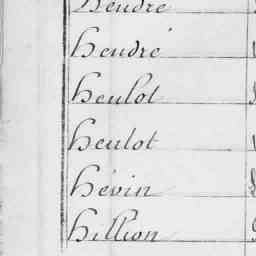 Heudré
Heudré
Heulot
Heulot
Hévin
Hillion